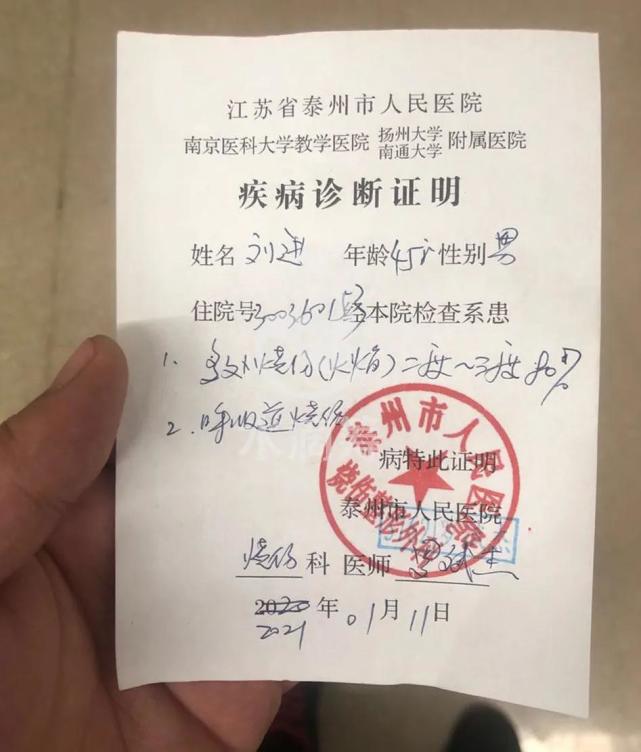 江苏省泰州市人民医院
南京医科大学教学医院 扬州大学 南通大学 附属医院
疾病诊断证明
姓名 刘进 年龄 45岁 性别 男
住院号 300360153 经本院检查系患
1. 多处烧伤(火焰)二度~三度 80%
2. 呼吸道烧伤
病特此证明
泰州市人民医院
泰州市人民医院
烧伤科 医师
2020 年 01 月 11 日
2021